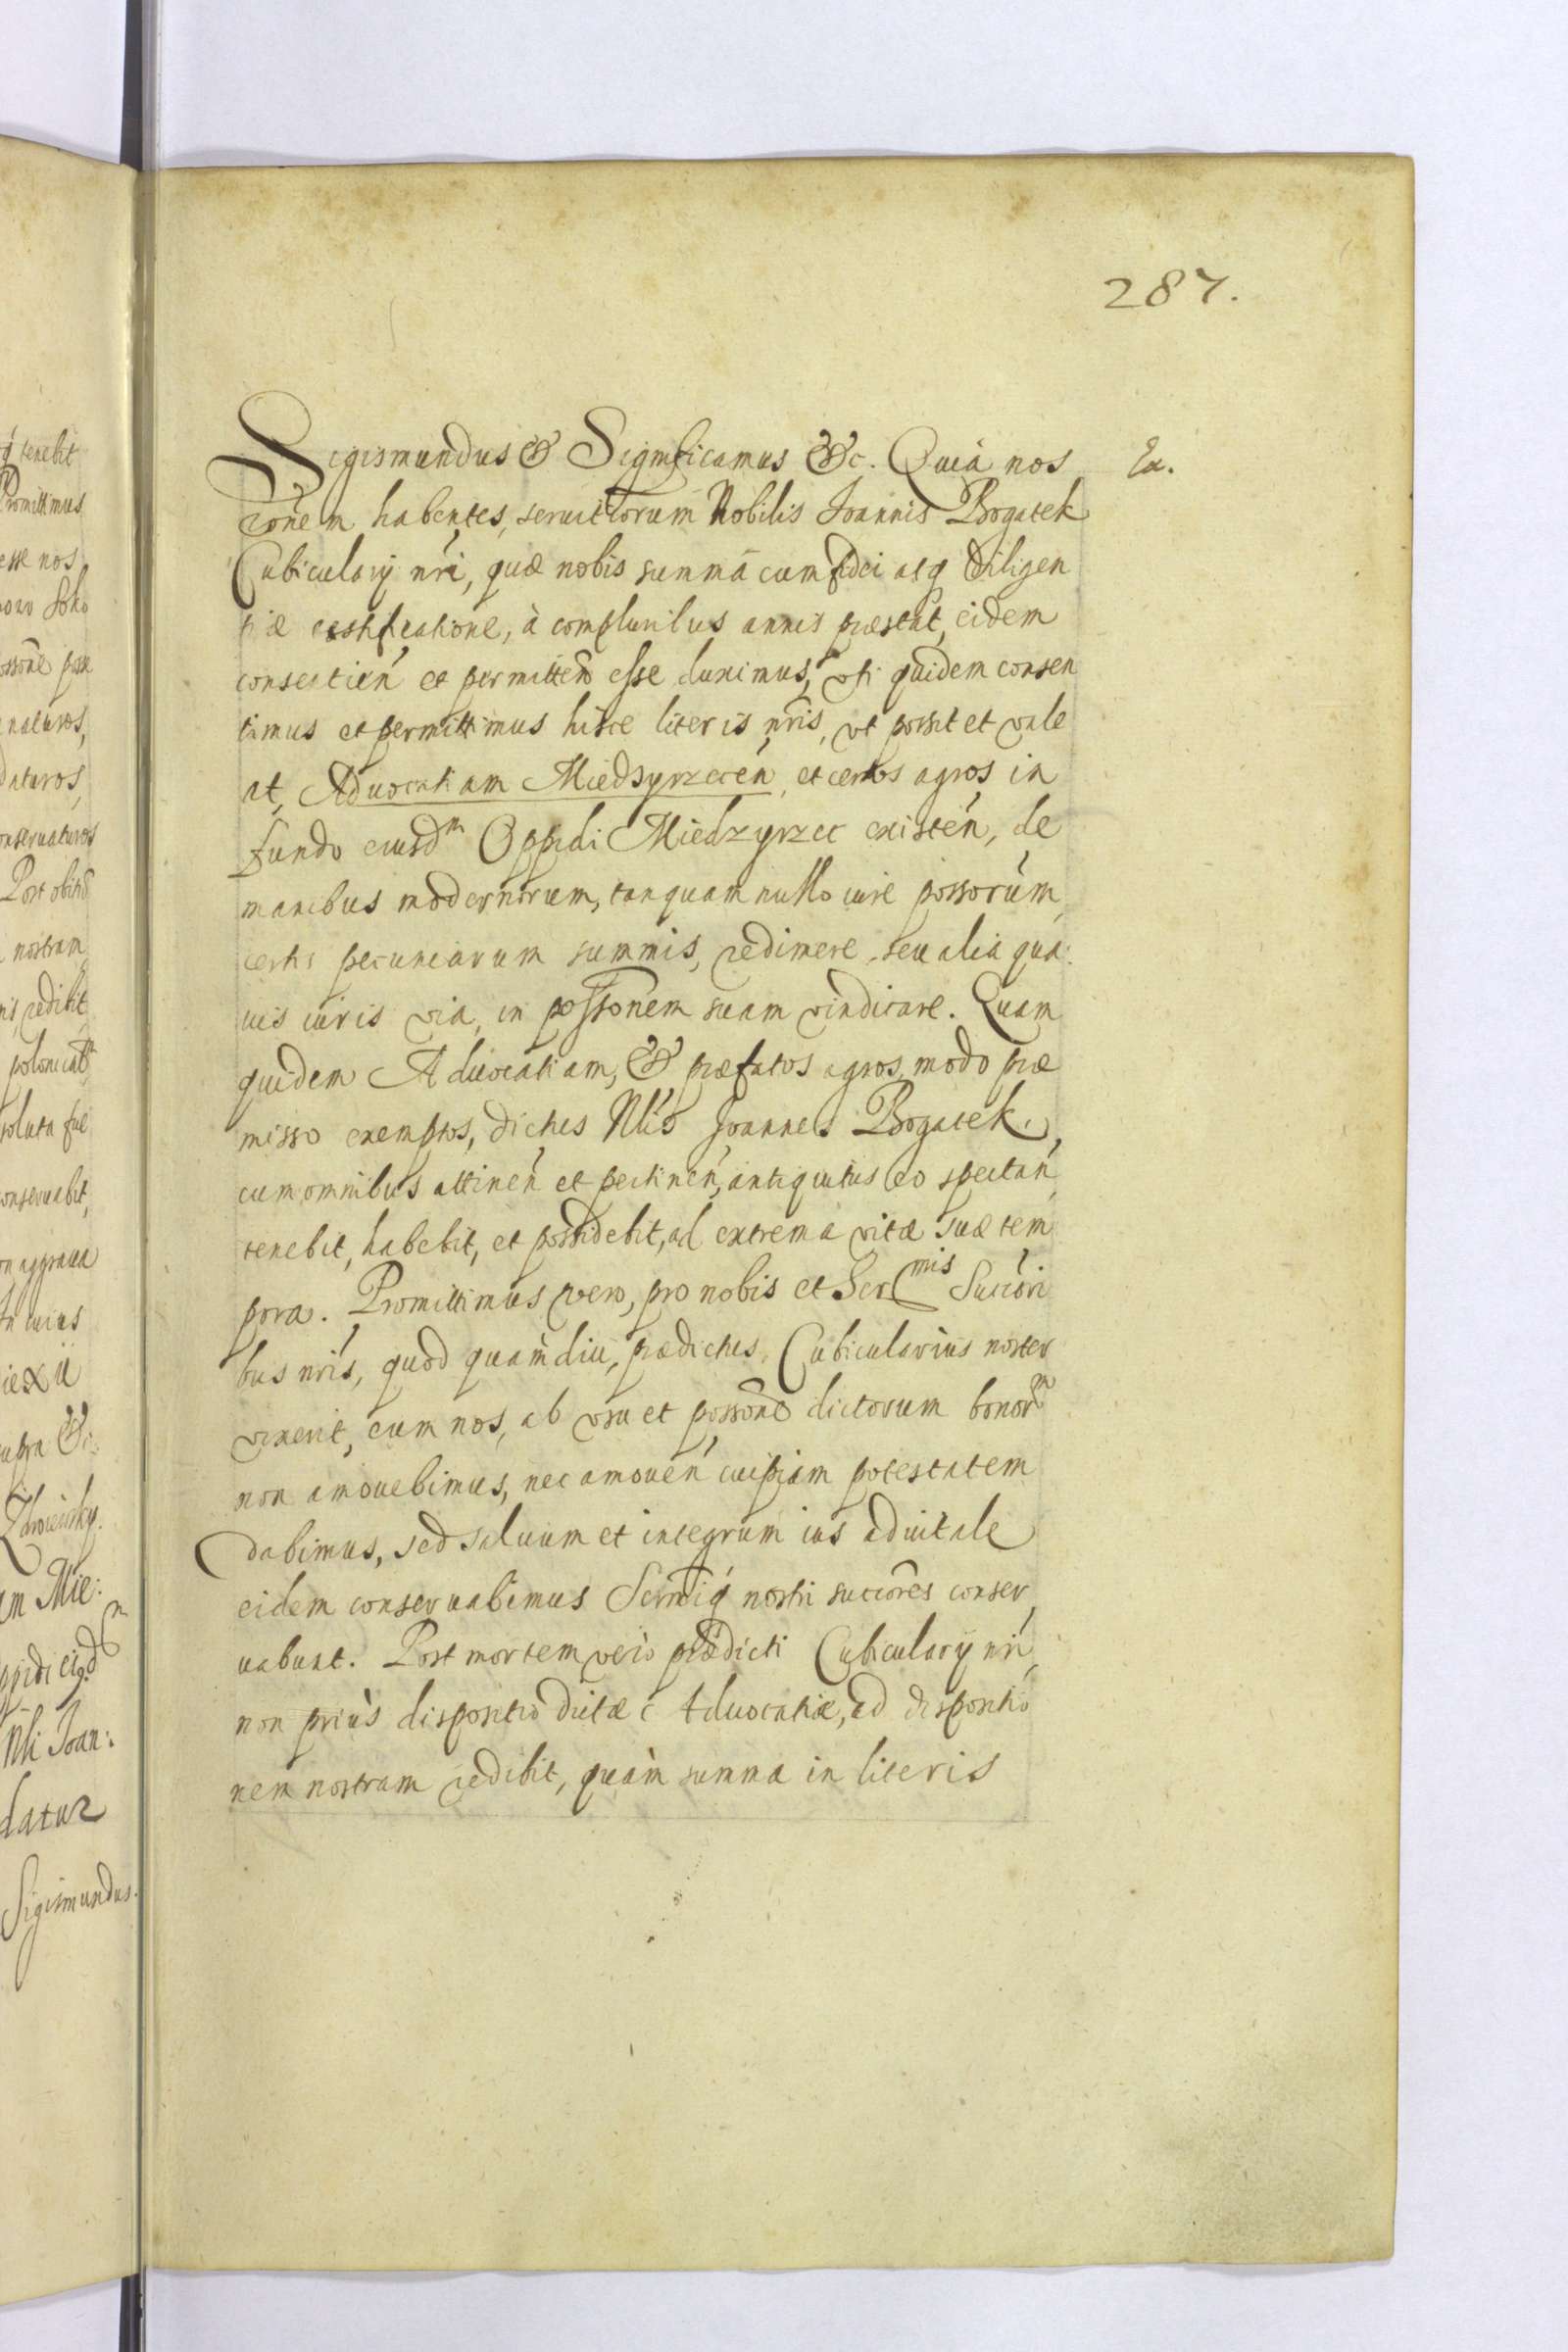 287.
Sigismundus & Significamus &c. Quia nos Ex.
rõnem habentes, seruitiorum Nobilis Joannis Bogatek
Cubiculary nr̃i, quæ nobis summâ cum fidei atq́ diligen
tiæ testificatione, à compluribus annis præstat, eidem
consentień et permitteñ esse duximus, vti quidem consen
timus et permittimus hisce literis nr̃is, vt possit et vale
at, Aduocatiam Miedsyrzeceń, et certos agros in
fundo eiusdm Oppidi Miedzyrzec existeń, de
manibus modernorum, tanquam nullo iure possorúm,
certis pecuniarum summis, redimere, seu alia qua:
uis iuris via, in possonem suam vindicare. Quam
quidem Aduocatiam, & præfatos agros, modo præ
misso exemptos, dictus Nlis Joannes Bogatek,
cum omnibus attineń et pertineń, antiquitus eo spectań,
tenebit, habebit, et possidebit, ad extrema vitæ suæ tem
pora. Promittimus vero, pro nobis et Sermis Succóri
bus nr̃is, quod quàmdiu, prædictus, Cubicularius noster
vixerit, eum nos, ab vsu et possone dictorum bonorm
non amouebimus, nec amoueń cuipiam potestatem
dabimus, sed saluum et integrum ius aduitale
eidem conseruabimus Sermiq́ nostri succores conser
uabunt. Post mortem verò prædicti Cubiculary nr̃i,
non priùs dispositio dictæ Aduocatiæ, ad dispositio
nem nostram redibit, quàm summa in literis
q́ tenebit
Promittimus
esse nos
possone
naturos,
daturos,
onseruaturos
Post obitũ
nostram
redibit
soluta fue
conseruabit,
on aggraua
In cuius
supra
am Mie:
Nli Joan:
datur
Sigismundus.